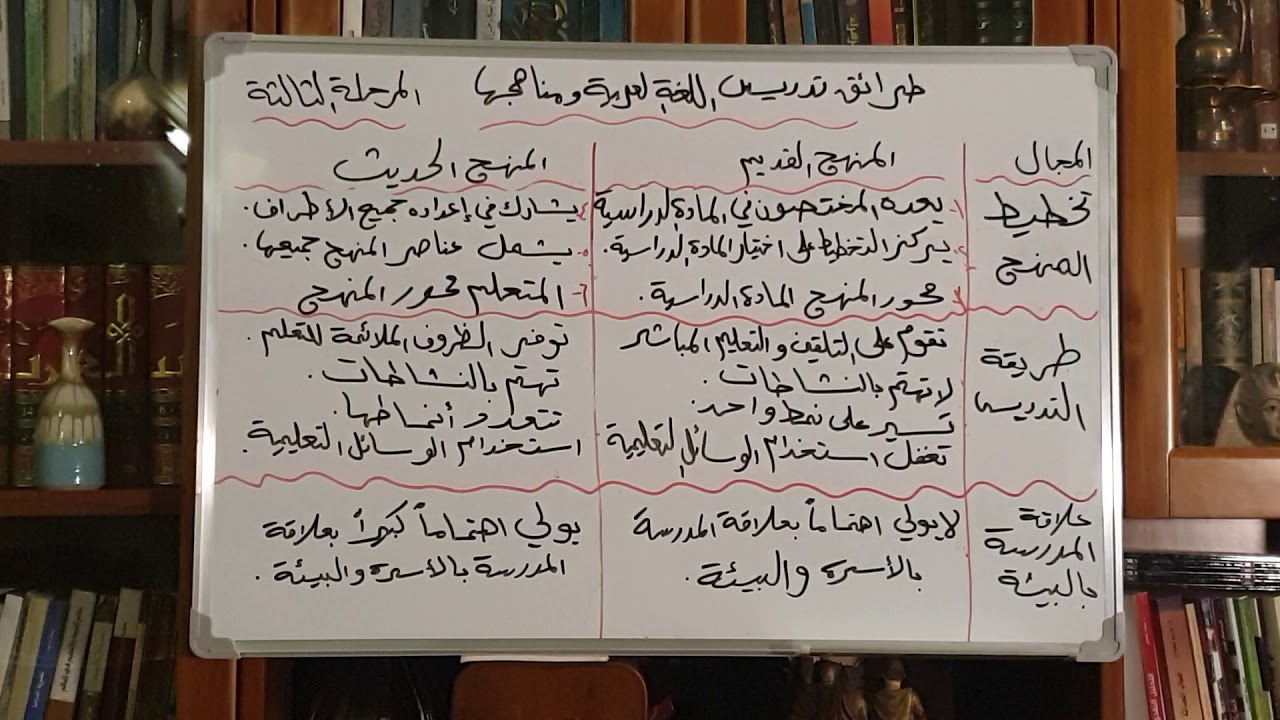 طرائق تدريس اللغة العربية ومناهجها المرحلة الثالثة
المجال
المنهج القديم
المنهج الحديث
تخطيط
المنهج
١- يعده المختصون في المادة الدراسية
٢- يركز التخطيط على اختيار المادة الدراسية.
٣- محور المنهج المادة الدراسية.
٤- يشارك في إعداده جميع الأطراف.
٥- يشمل عناصر المنهج جميعها.
٦- المتعلم محور المنهج
طريقة
التدريس
تقوم على التلقين والتعليم المباشر
لا تهتم بالنشاطات.
تسير على نمط واحد.
تغفل استخدام الوسائل التعليمية
توفير الظروف الملائمة للتعلم.
تهتم بالنشاطات.
تتعدد أنماطها.
استخدام الوسائل التعليمية.
علاقة
المدرسة
بالبيئة
لا يولي اهتماماً بعلاقة المدرسة
بالأسرة والبيئة.
يولي اهتماماً كبيراً بعلاقة
المدرسة بالأسرة والبيئة.